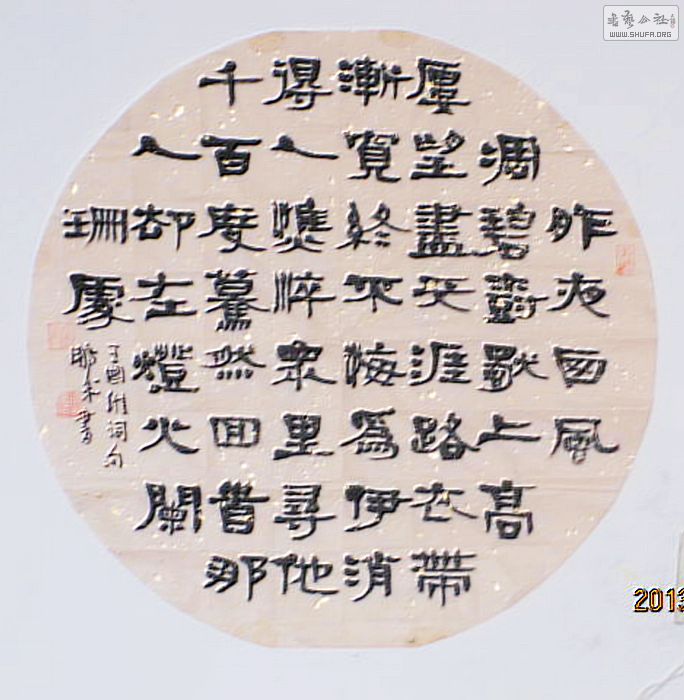 昨夜西風
凋碧樹獨上高
廔望盡天涯路衣帶
漸寬終不悔爲伊消
得人憔悴衆里尋他
千百度驀然回首那
人却在燈火闌
珊處
王國維詞句
鵬書
書藝公社
WWW.SHUFA.ORG
2013